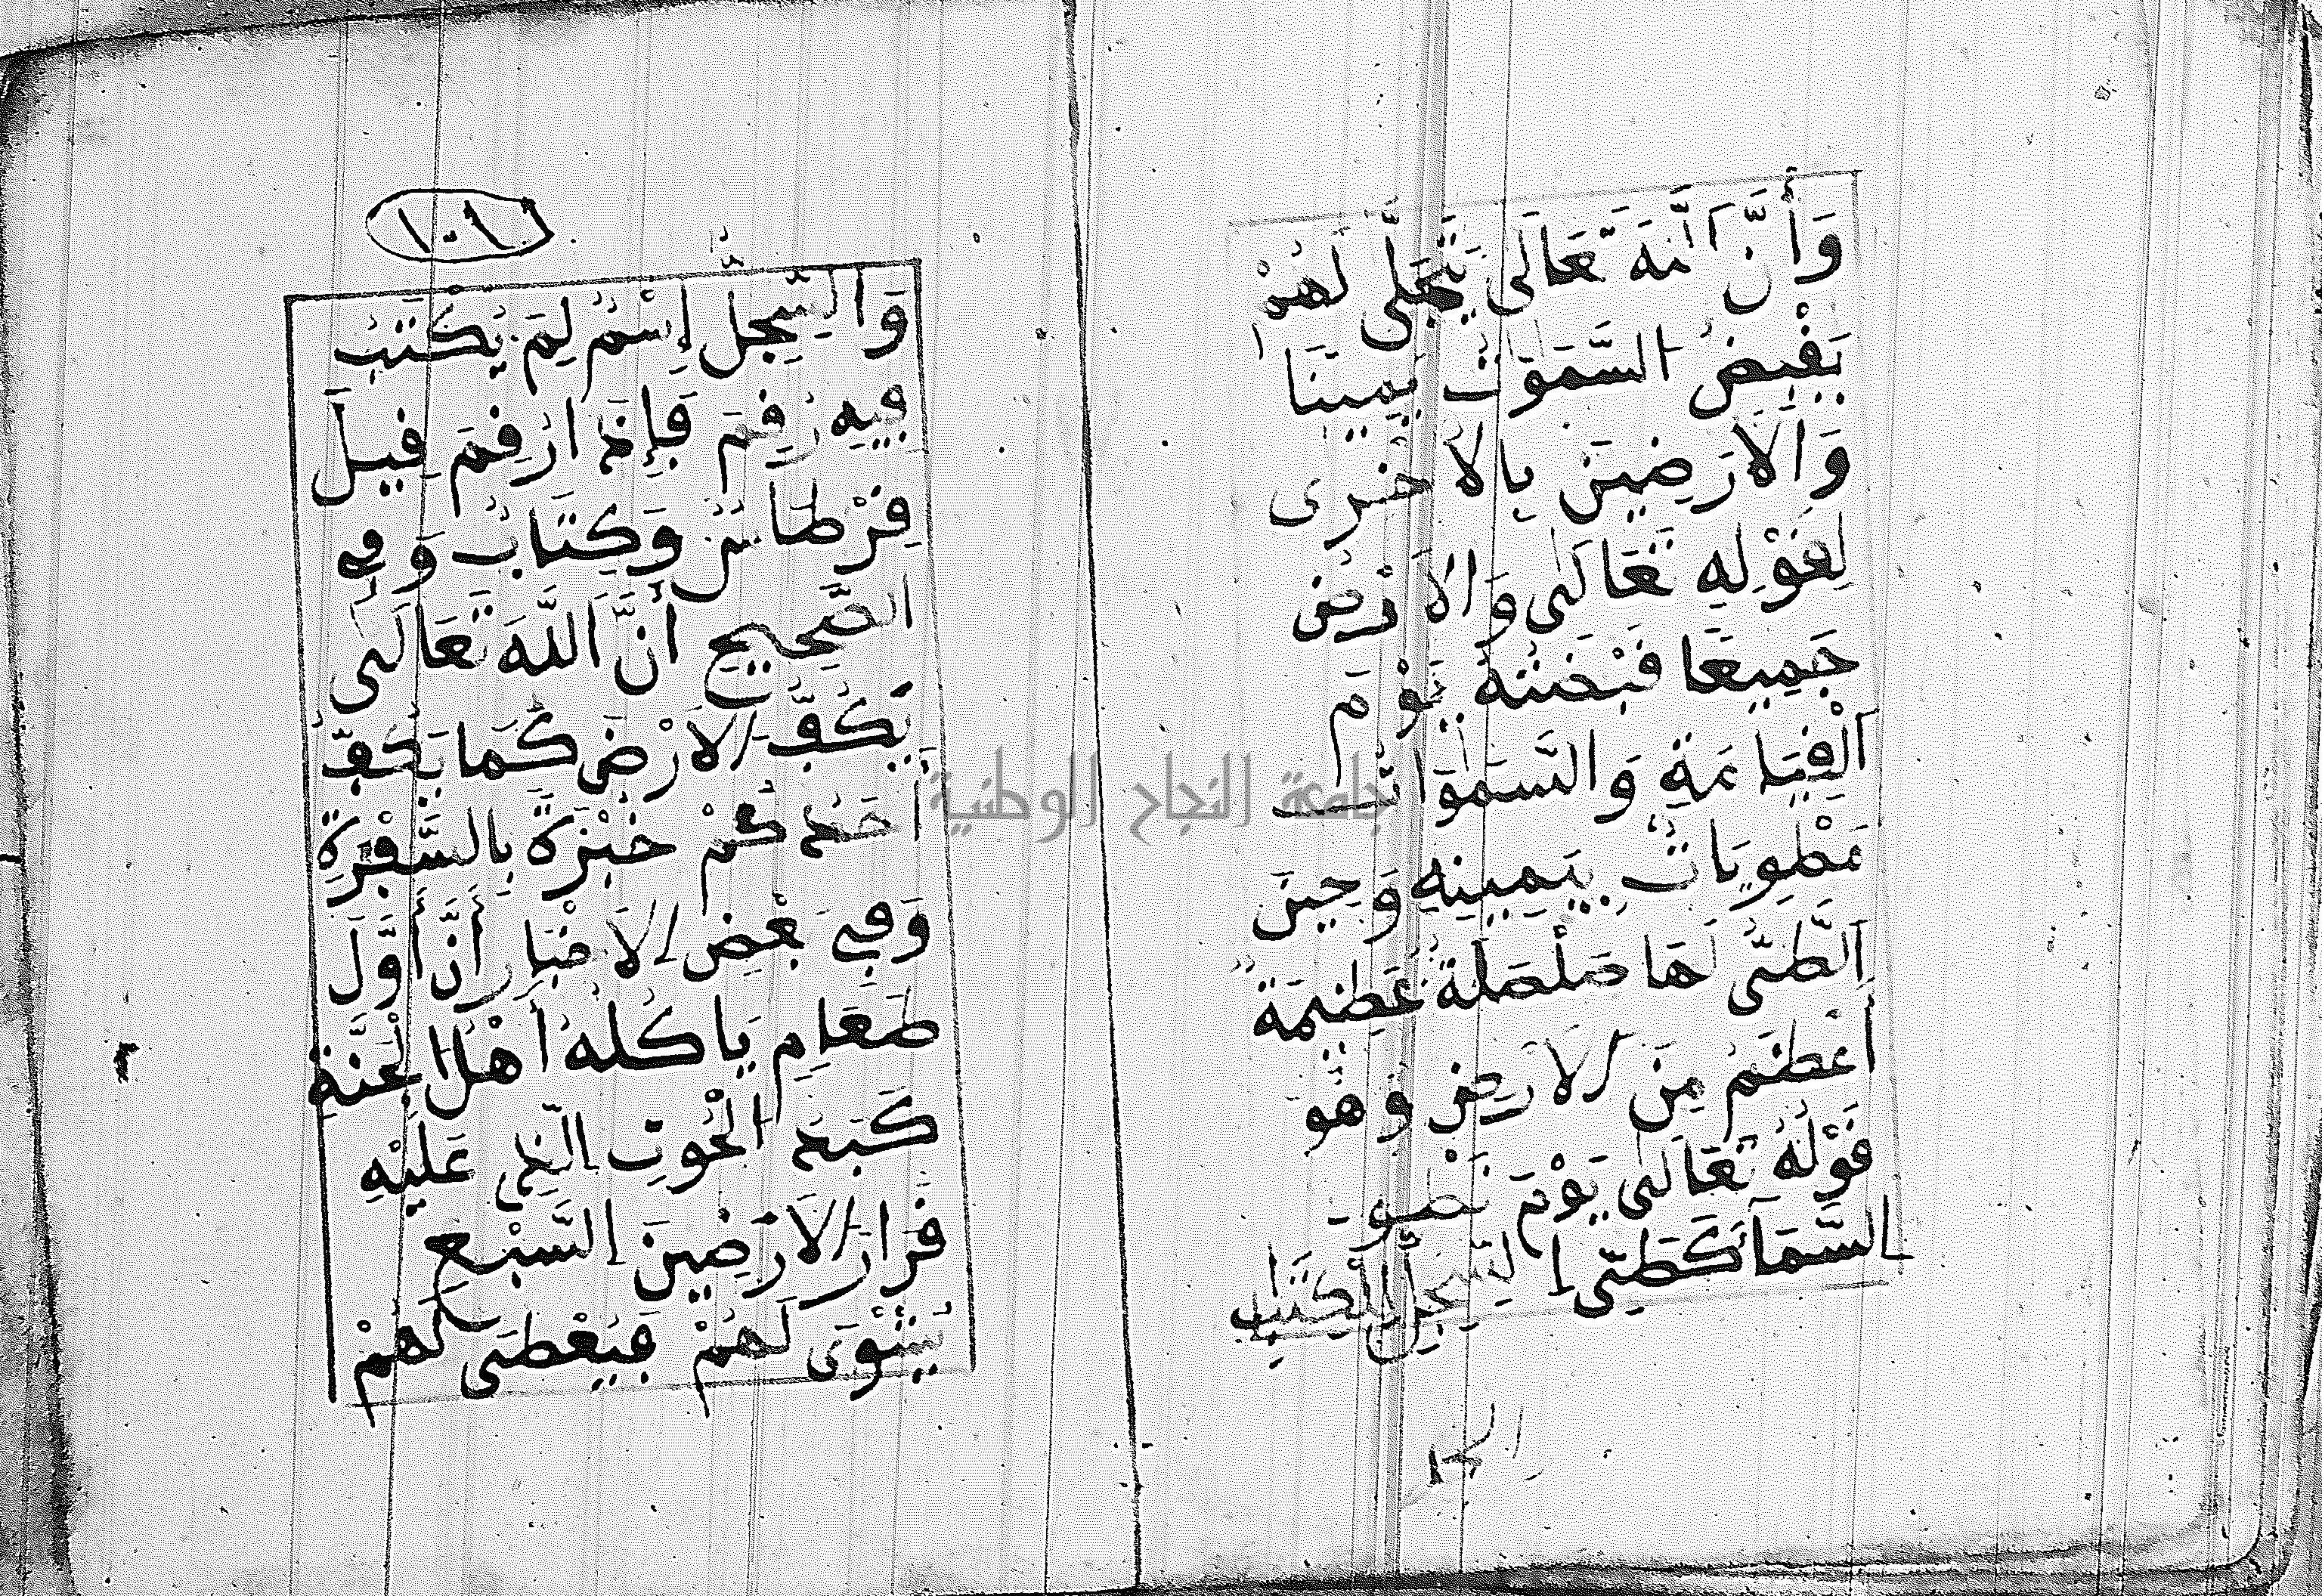 وَأَنَّ اللّٰهَ تَعَالَى يَتَجَلَّى لَهُمْ
يَقْبِضُ السَّمَوَتِ بِيَمِينَا
وَالاَرَضِينَ بِالاُخْرَى
لِقَوْلِهِ تَعَالَى وَالاَرْضُ
جَمِيعًا قَبْضَتُهُ يَوْمَ
الْقِيَامَةِ وَالسَّمَوَاتُ
مَطْوِيَاتٌ بِيَمِينِهِ وَحِينَ
الطَّىِّ لَهَا صَلْصَلَةٌ عَظِيمَةٌ
أَعْظَمُ مِنَ الاَرْضِ وَهُوَ
قَوْلُهُ تَعَالَى يَوْمَ نَطْوِى
السَّمَآ كَطَىِّ السِّجِلِّ لِلْكِتَابِ
١٠١
وَالسِّجِلُّ إِسْمٌ لِمَ يُكْتَبُ
فِيهِ رُقِمَ فَإِذَا رُقِمَ قِيلَ
قِرْطَاسٌ وَكِتَابٌ وَفِى
الصَّحِيحِ أَنَّ اللَّهَ تَعَالَى
يَكُفُّ الاَرْضَ كَمَا يَكُفُّ
أَحَدُكُمْ خُبْزَةً بِالسُّفْرَةِ
وَفِى بَعْضِ الاَخْبَارِ أَنَّ أَوَّلَ
طَعَامِ يَاكُلُهُ أَهْلُ الْجَنَّةِ
كَبَدَ الْحُوتِ الَّذِى عَلَيْهِ
قَرَارُ الاَرَضِينَ السَّبْعِ
يُشْوَى لَهُمْ فَيُعْطَى لَهُمْ
جامعة النجاح الوطنية